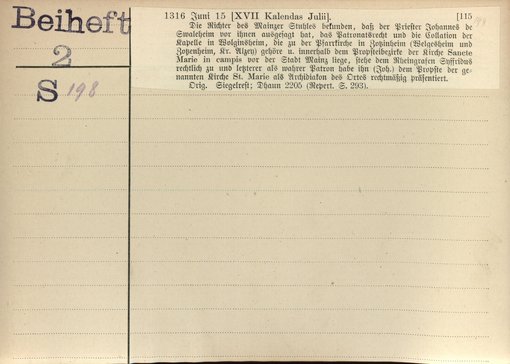 Beiheft
2
S 198
1316 Juni 15 [XVII Kalendas Julii]. [115
Die Richter des Mainzer Stuhles bekunden, daß der Priester Johannes de
Swalcheim vor ihnen ausgesagt hat, das Patronatsrecht und die Collation der
Kapelle in Wolginsheim, die zu der Pfarrkirche in Zozinheim (Welgesheim und
Zotzenheim, Kr. Alzey) gehöre u. innerhalb dem Propsteibezirke der Kirche Sancte
Marie in campis vor der Stadt Mainz liege, stehe dem Rheingrafen Syffridus
rechtlich zu und letzterer als wahrer Patron habe ihn (Joh.) dem Propste der ge-
nannten Kirche St. Marie als Archidiakon des Ortes rechtmäßig präsentiert.
Orig. Siegelrest; Dhaun 2205 (Repert. S. 293).